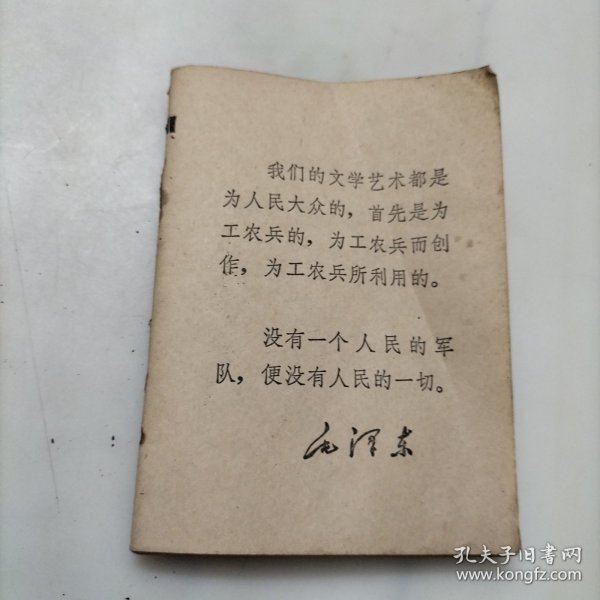 我们的文学艺术都是
为人民大众的，首先是为
工农兵的，为工农兵而创
作，为工农兵所利用的。
没有一个人民的军
队，便没有人民的一切。
毛泽东
孔夫子旧书网
www.kongfz.com